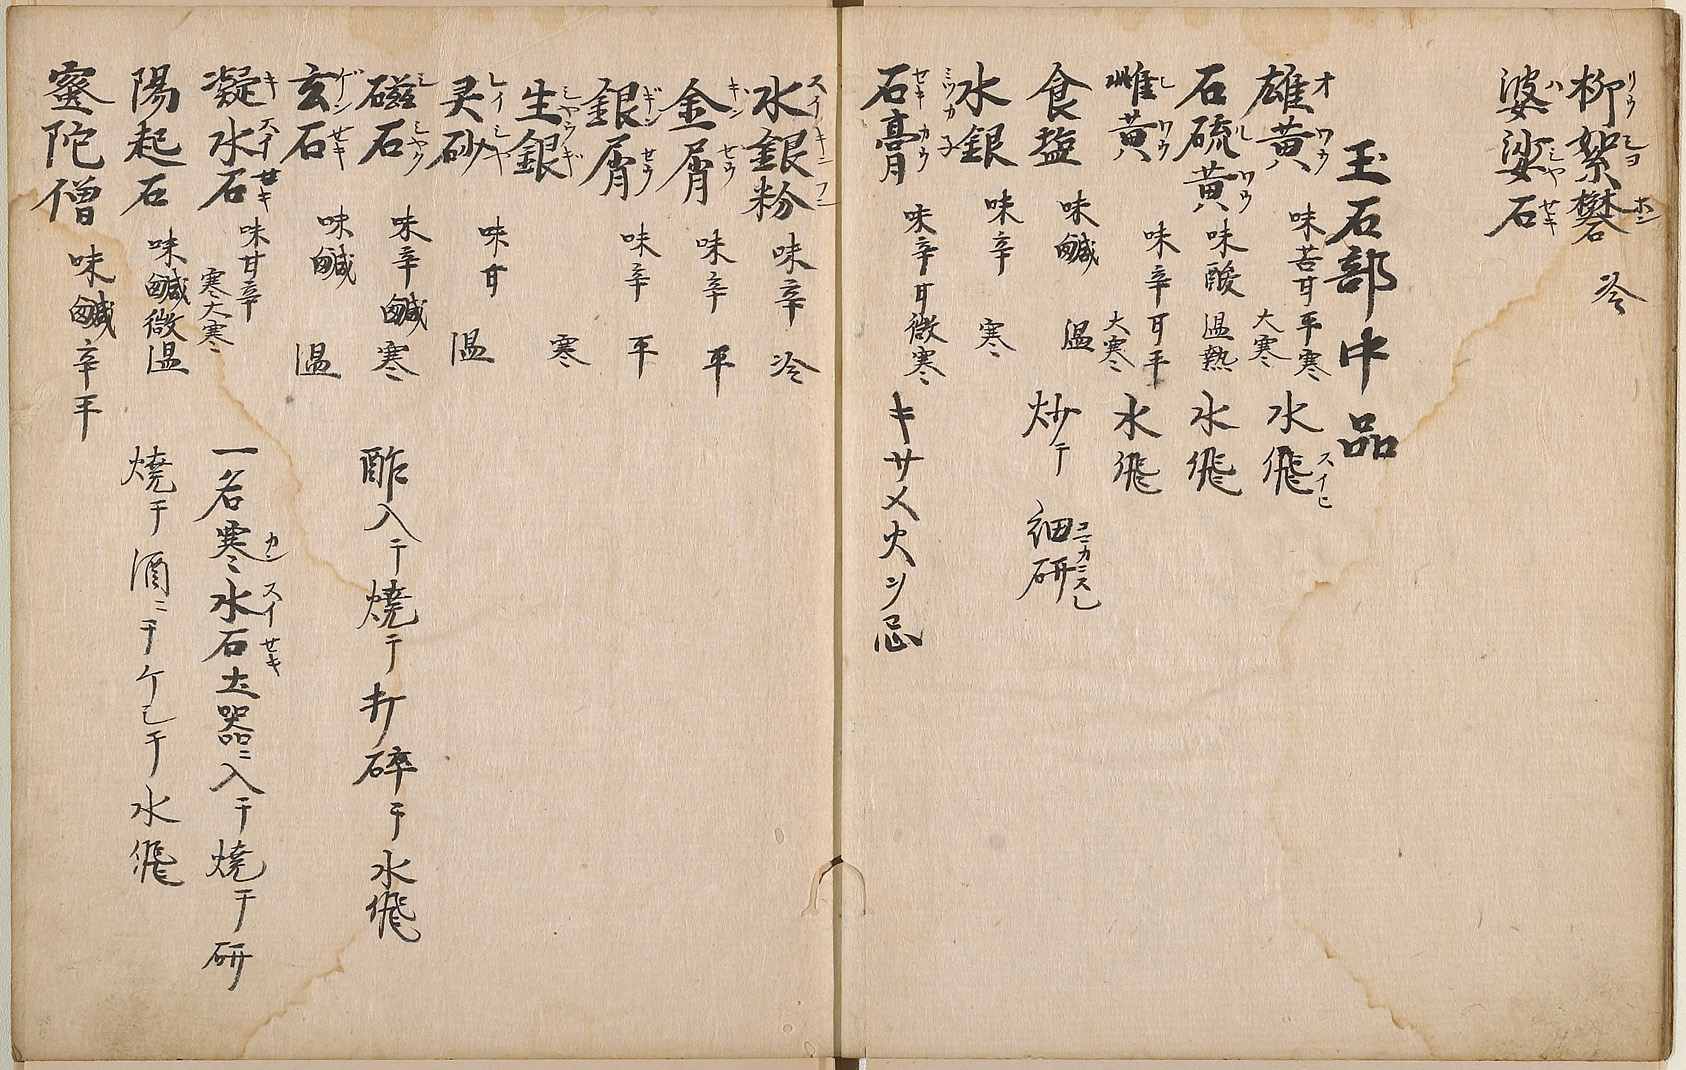 柳絮礬 冷
婆娑石
玉石部中品
雄黄 味苦甘平寒 大寒 水飛
石硫黄 味酸 温熱 水飛
雌黄 味辛甘平 大寒 水飛
食塩 味鹹 温 炒テ 細研
水銀 味辛 寒
石膏 味辛甘微寒 キサメ火ヲ忌
水銀粉 味辛 冷
金屑 味辛 平
銀屑 味辛 平
生銀 寒
灵砂 味甘 温
磁石 味辛鹹 寒 酢入テ焼テ打碎テ水飛
玄石 味鹹 温
凝水石 味甘辛 寒大寒 一名寒水石土器ニ入テ焼テ研
陽起石 味鹹微温 焼テ酒ニテケシテ水飛
蜜陀僧 味鹹辛平